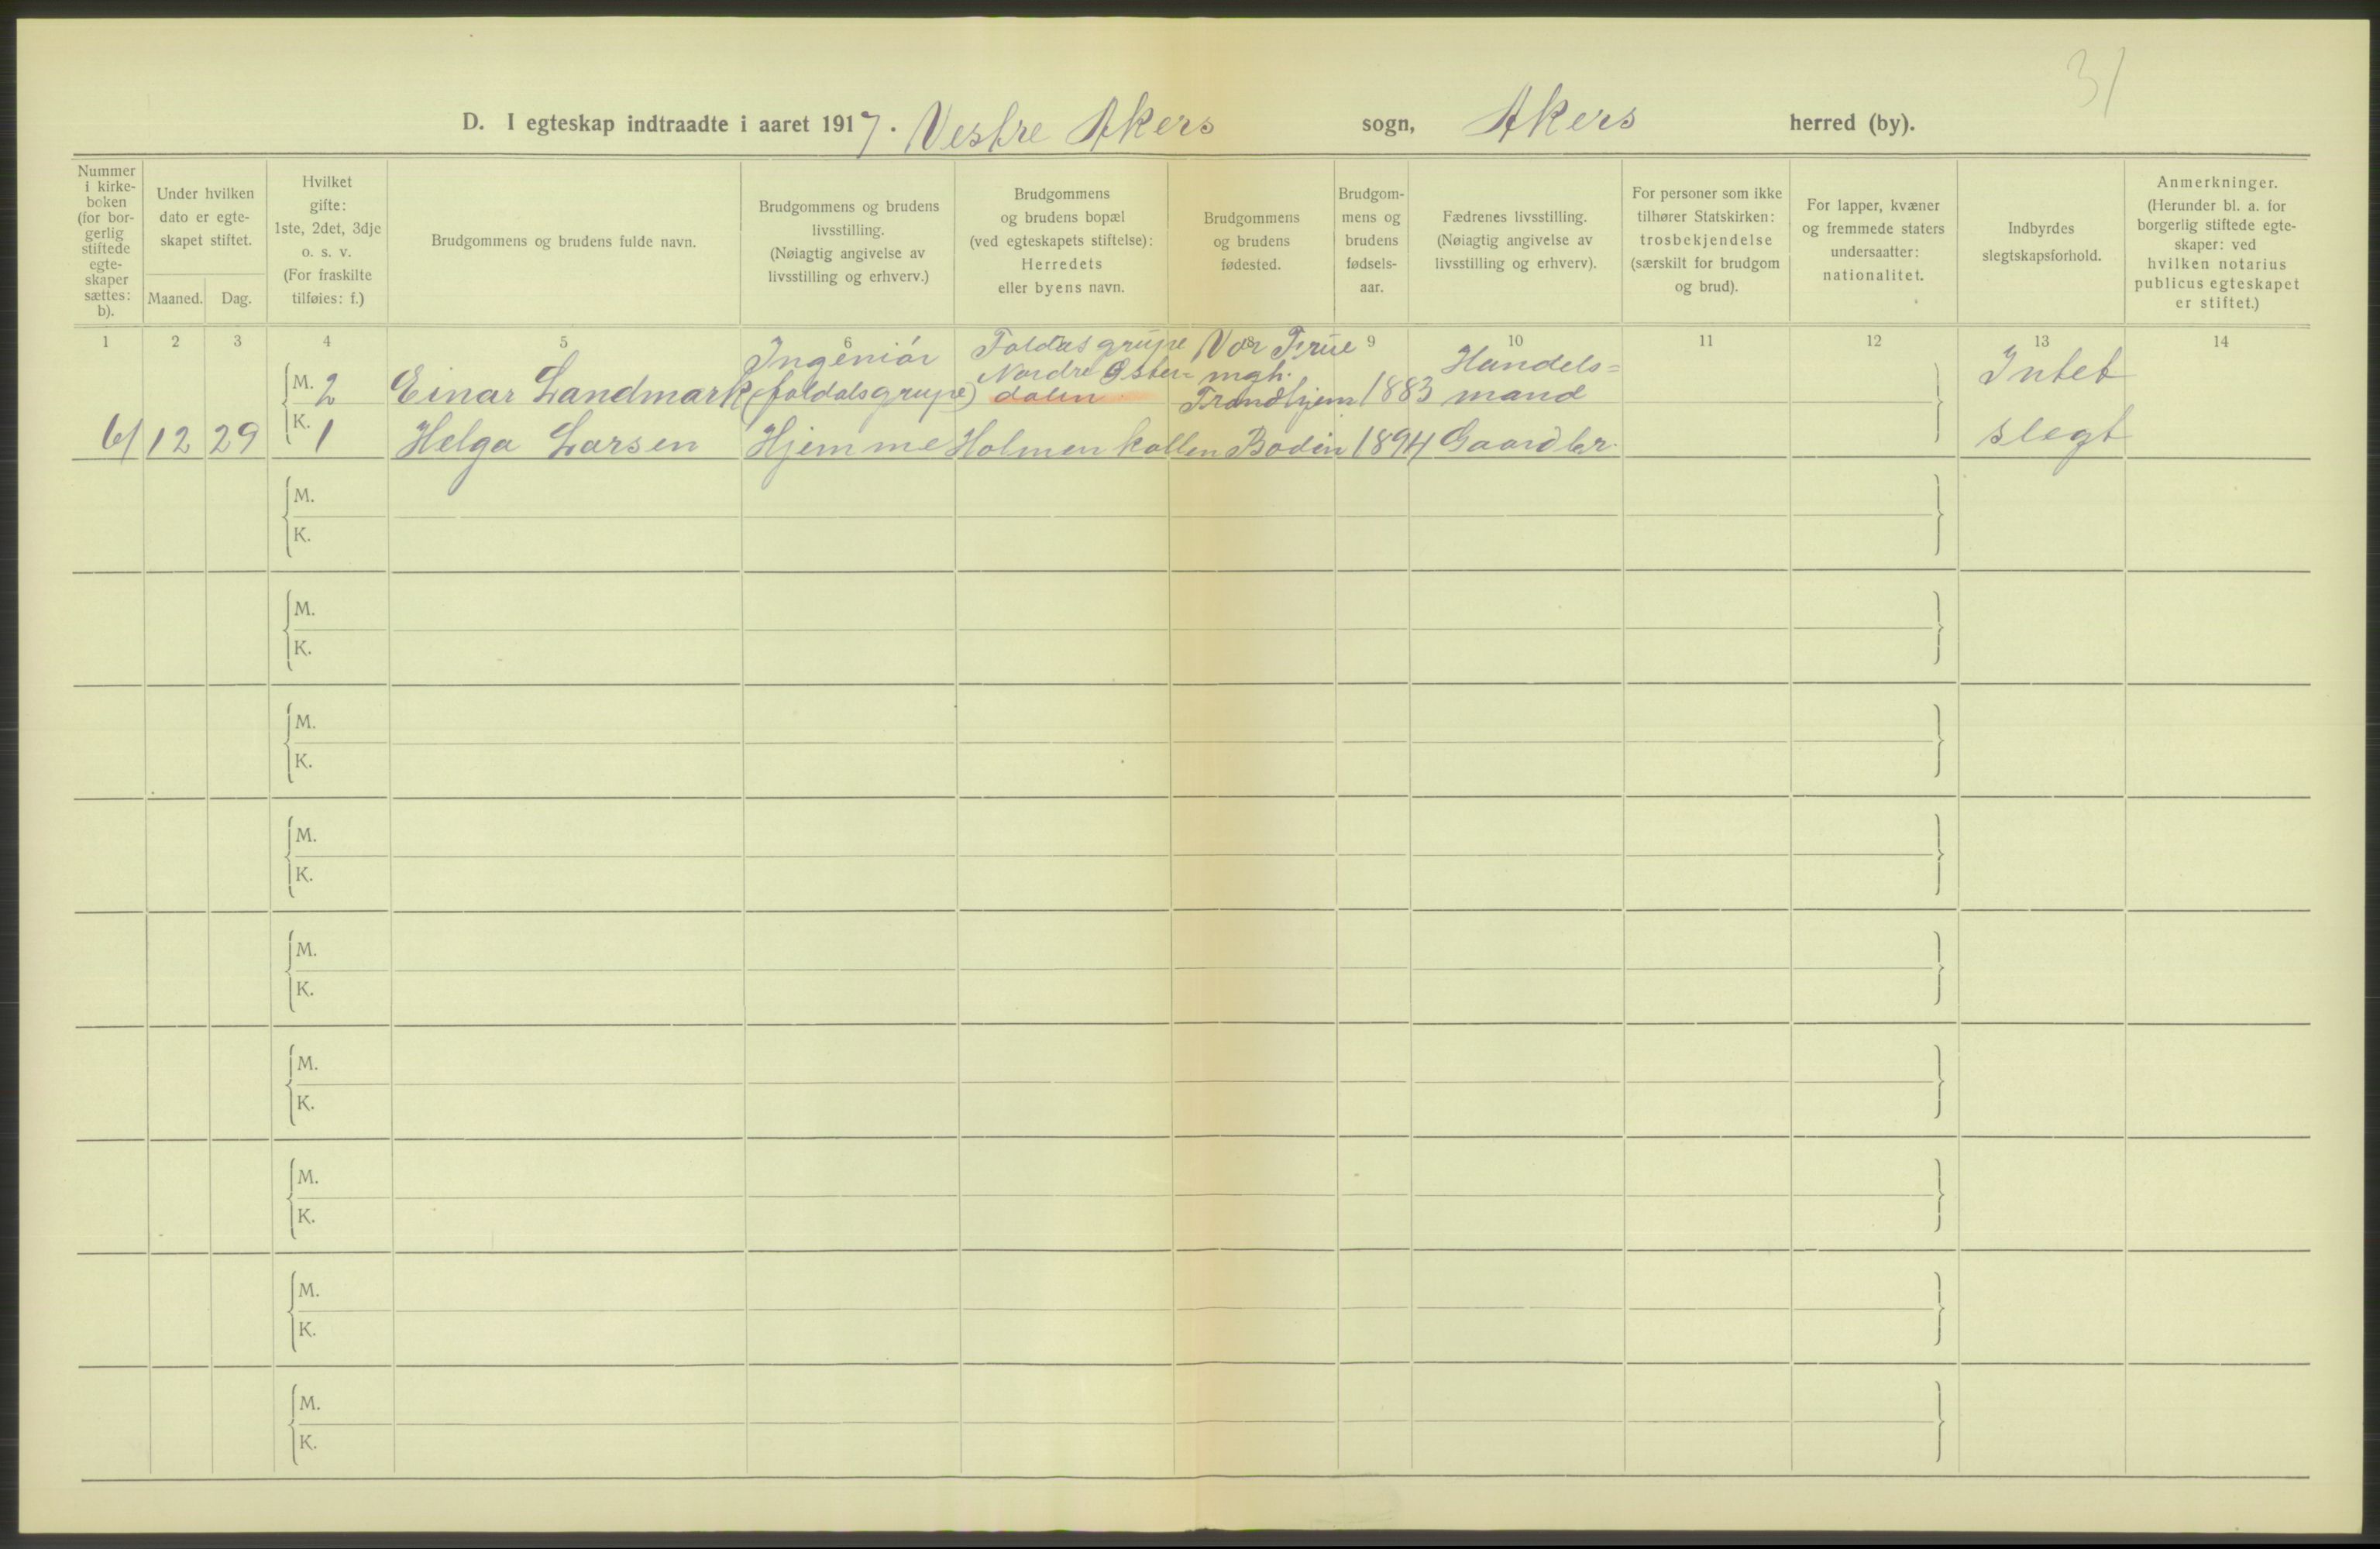 31
D. I egteskap indtraadte i aaret 1917. Vestre Akers sogn, Akers herred (by).
Nummer
i kirke-
boken
(for bor-
gerlig
stiftede
egte-
skaper
sættes:
b).
Under hvilken
dato er egte-
skapet stiftet.
Maaned. Dag.
Hvilket
gifte:
1ste, 2det, 3dje
o. s. v.
(For fraskilte
tilføies: f.)
Brudgommens og brudens fulde navn.
Brudgommens og brudens
livsstilling.
(Nøiagtig angivelse av
livsstilling og erhverv.)
Brudgommens
og brudens bopæl
(ved egteskapets stiftelse):
Herredets
eller byens navn.
Brudgommens
og brudens
fødested.
Brudgom-
mens og
brudens
fødsels-
aar.
Fædrenes livsstilling.
(Nøiagtig angivelse av
livsstilling og erhverv).
For personer som ikke
tilhører Statskirken:
trosbekjendelse
(særskilt for brudgom
og brud).
For lapper, kvæner
og fremmede staters
undersaatter:
nationalitet.
Indbyrdes
slegtskapsforhold.
Anmerkninger.
(Herunder bl. a. for
borgerlig stiftede egte-
skaper: ved
hvilken notarius
publicus egteskapet
er stiftet.)
1 2 3 4 5 6 8 9 10 11 12 13 14
M. 2 Einar Landmark
Ingeniör
(foldalsgrupe)
Foldals grupe
Nordre Øster=
dalen
Vor Frue
mgh.
Trondhjem
1883
Handels=
mand
Intet
slegt
61 12 29
K. 1 Helga Larsen Hjemme Holmenkollen Bodin 1894 Gaardbr.
M.
K.
M.
K.
M.
K.
M.
K.
M.
K.
M.
K.
M.
K.
M.
K.
M.
K.